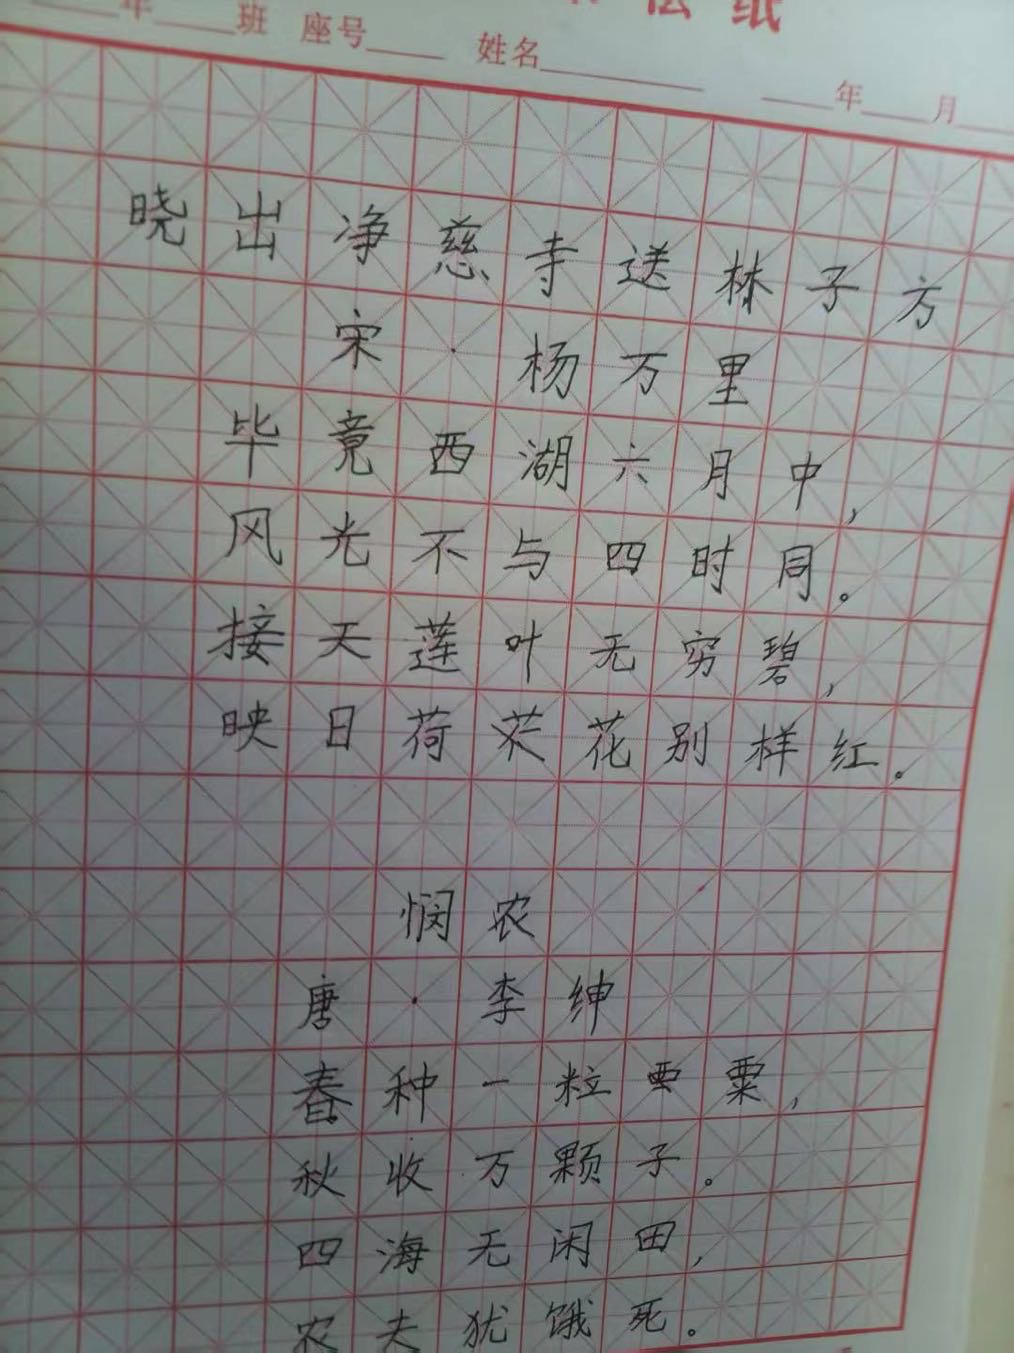 法纸
年 班 座号 姓名 年 月
晓出净慈寺送林子方
宋·杨万里
毕竟西湖六月中，
风光不与四时同。
接天莲叶无穷碧，
映日荷花别样红。
悯农
唐·李绅
春种一粒粟，
秋收万颗子。
四海无闲田，
农夫犹饿死。